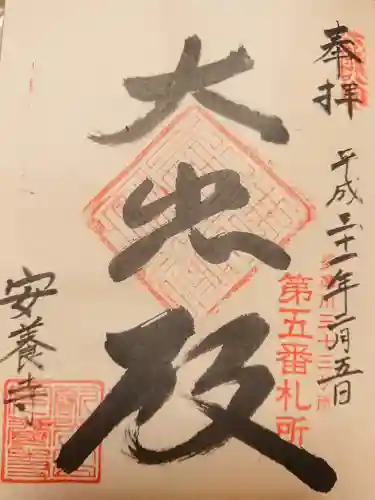 奉拝
平成三十一年二月五日
第五番札所
大悲殿
安養寺